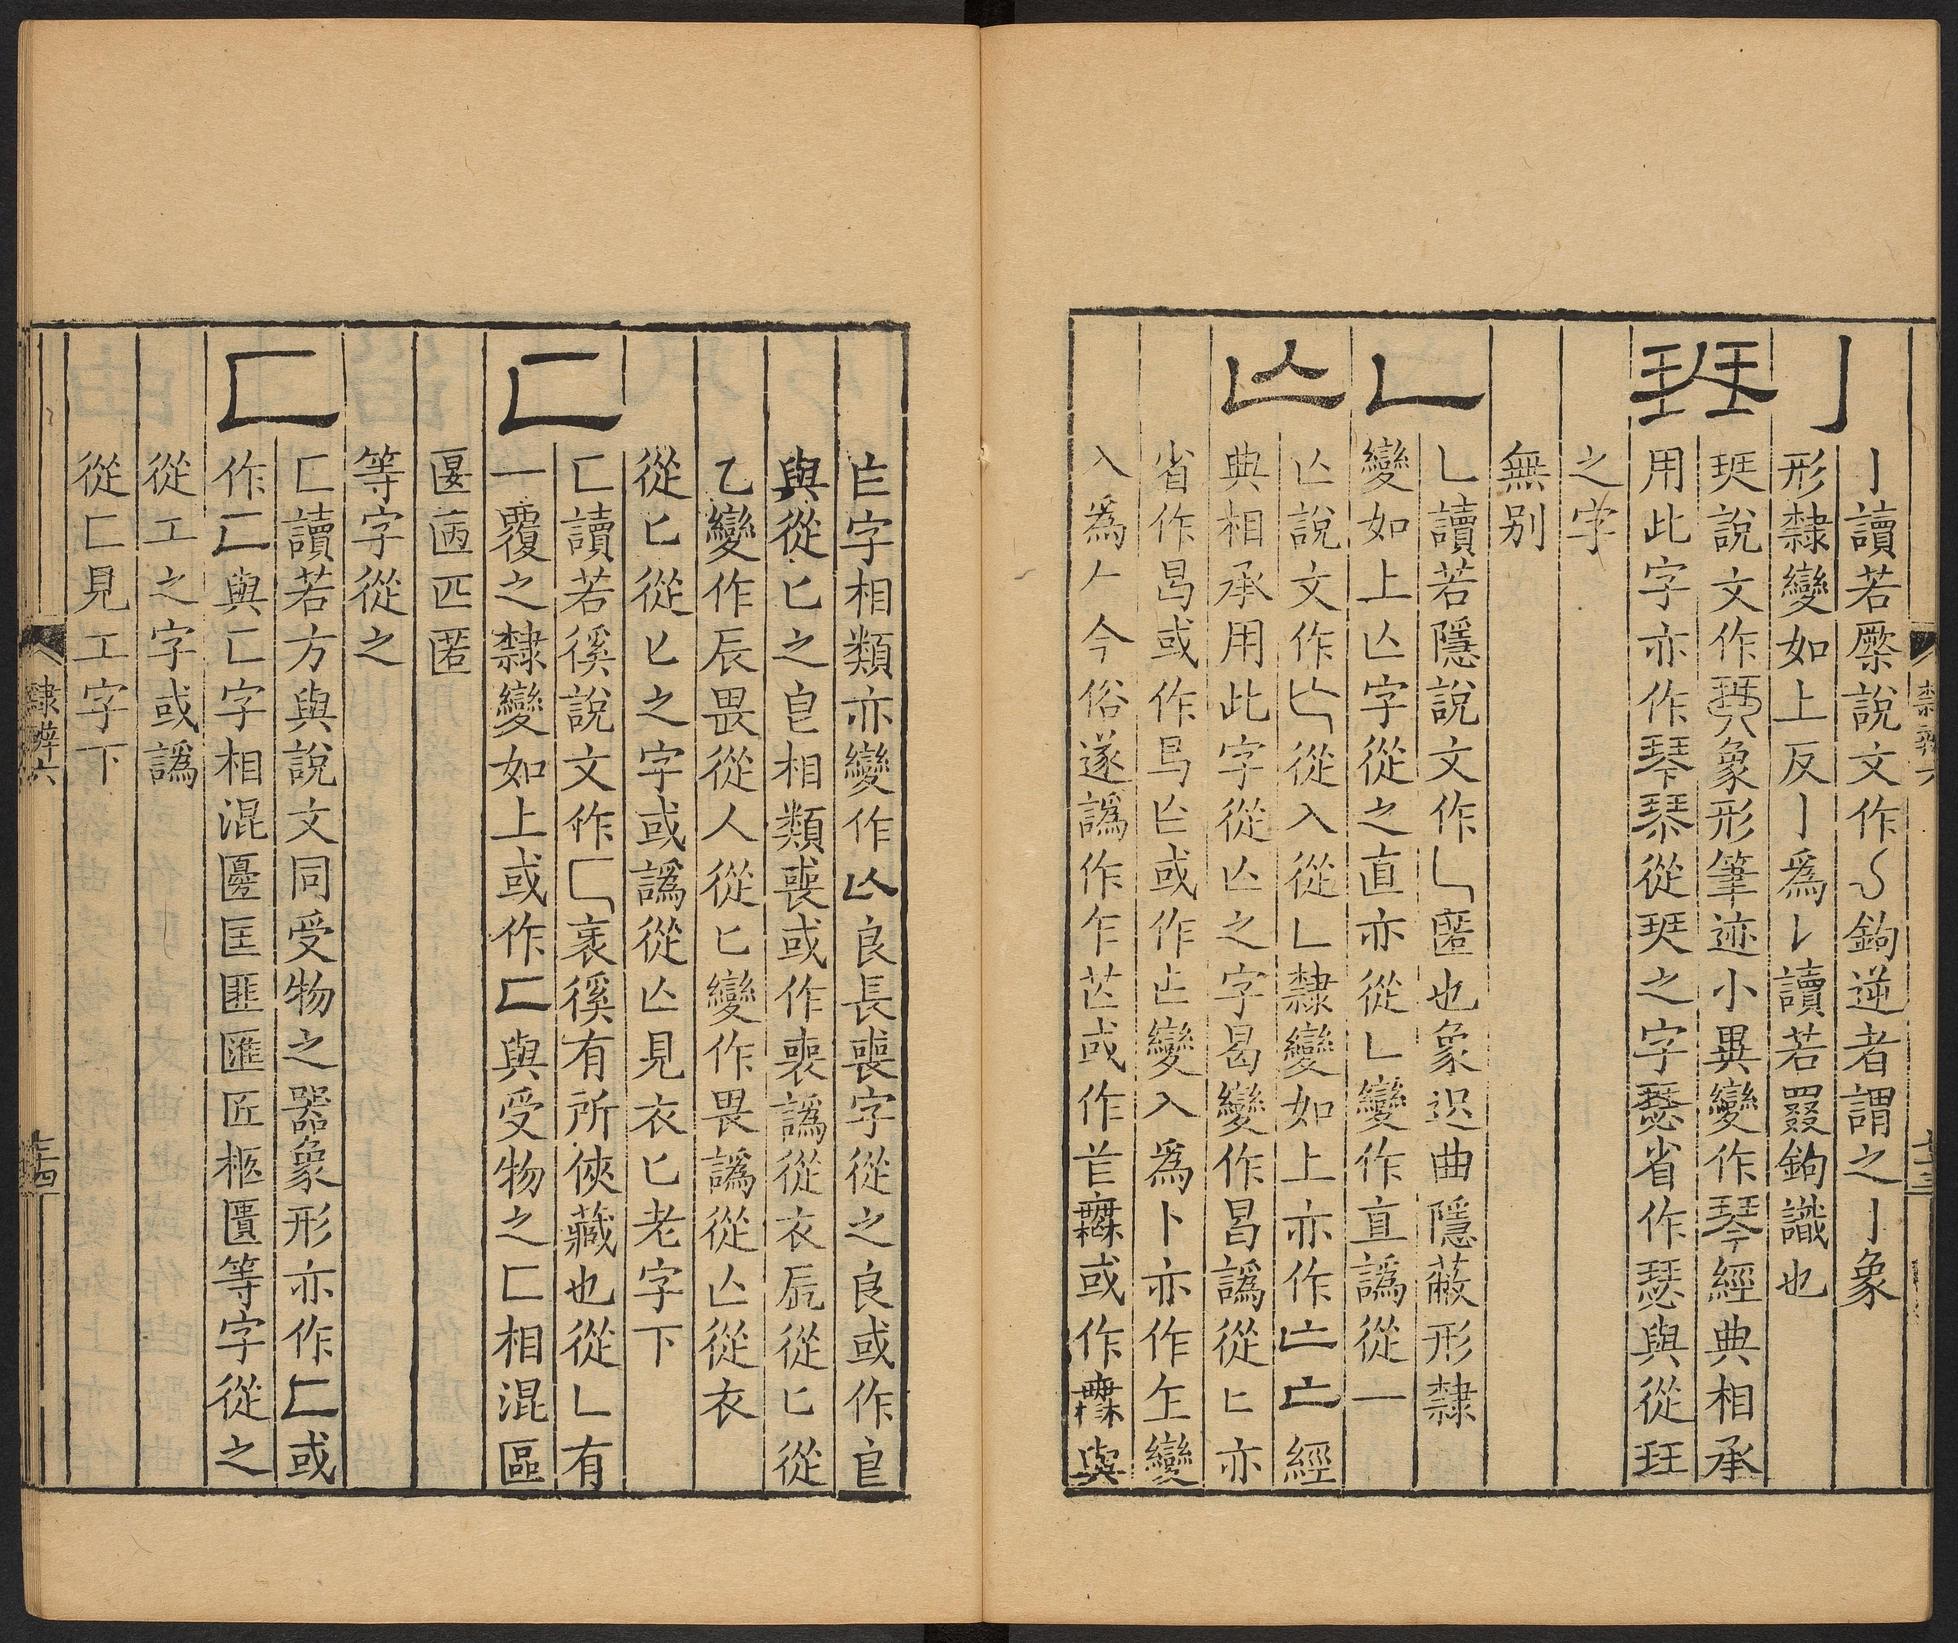 亅
亅讀若橜說文作𠄌鉤逆者謂之亅象
形隸變如上反亅爲𠄌讀若罬鉤識也
珡
珡說文作珡象形筆迹小異變作琴經典相承
用此字亦作琴琹從珡之字瑟省作瑟與從玨
之字
無別
乚
乚讀若隱說文作乚匿也象迟曲隱蔽形隸
變如上亾字從之直亦從乚變作直譌從一
亾
亾說文作亾從入從乚隸變如上亦作亡亡經
典相承用此字從亾之字曷變作曷譌從匕亦
省作曷或作㠯匃或作亡變入爲卜亦作㐄變
入爲𠂉今俗遂譌作乍芒或作芒無或作無與
㠯字相類亦變作亾良長喪字從之良或作㠯
與從匕之皀相類喪或作喪譌從衣𠂢從匕從
乙變作辰畏從人從匕變作畏譌從亾從衣
從匕從匕之字或譌從亾見衣匕老字下
匸
匸讀若徯說文作匸衺徯有所俠藏也從乚有
一覆之隸變如上或作匚與受物之匚相混區
匽㔷匹匿
等字從之
匚
匚讀若方與說文同受物之器象形亦作匚或
作匚與匸字相混匽匡匪匯匠柩匱等字從之
從工之字或譌
從匚見工字下
隸辨六